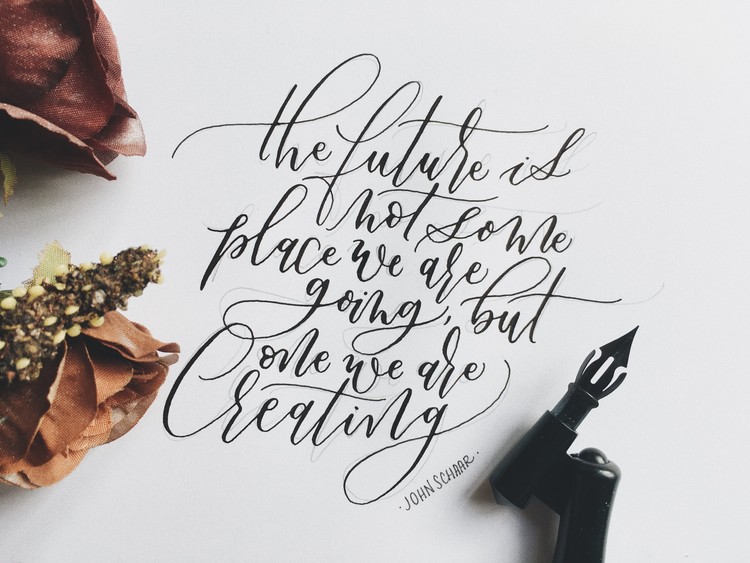 the future is
not some
place we are
going, but
one we are
Creating
. JOHN SCHAAR .